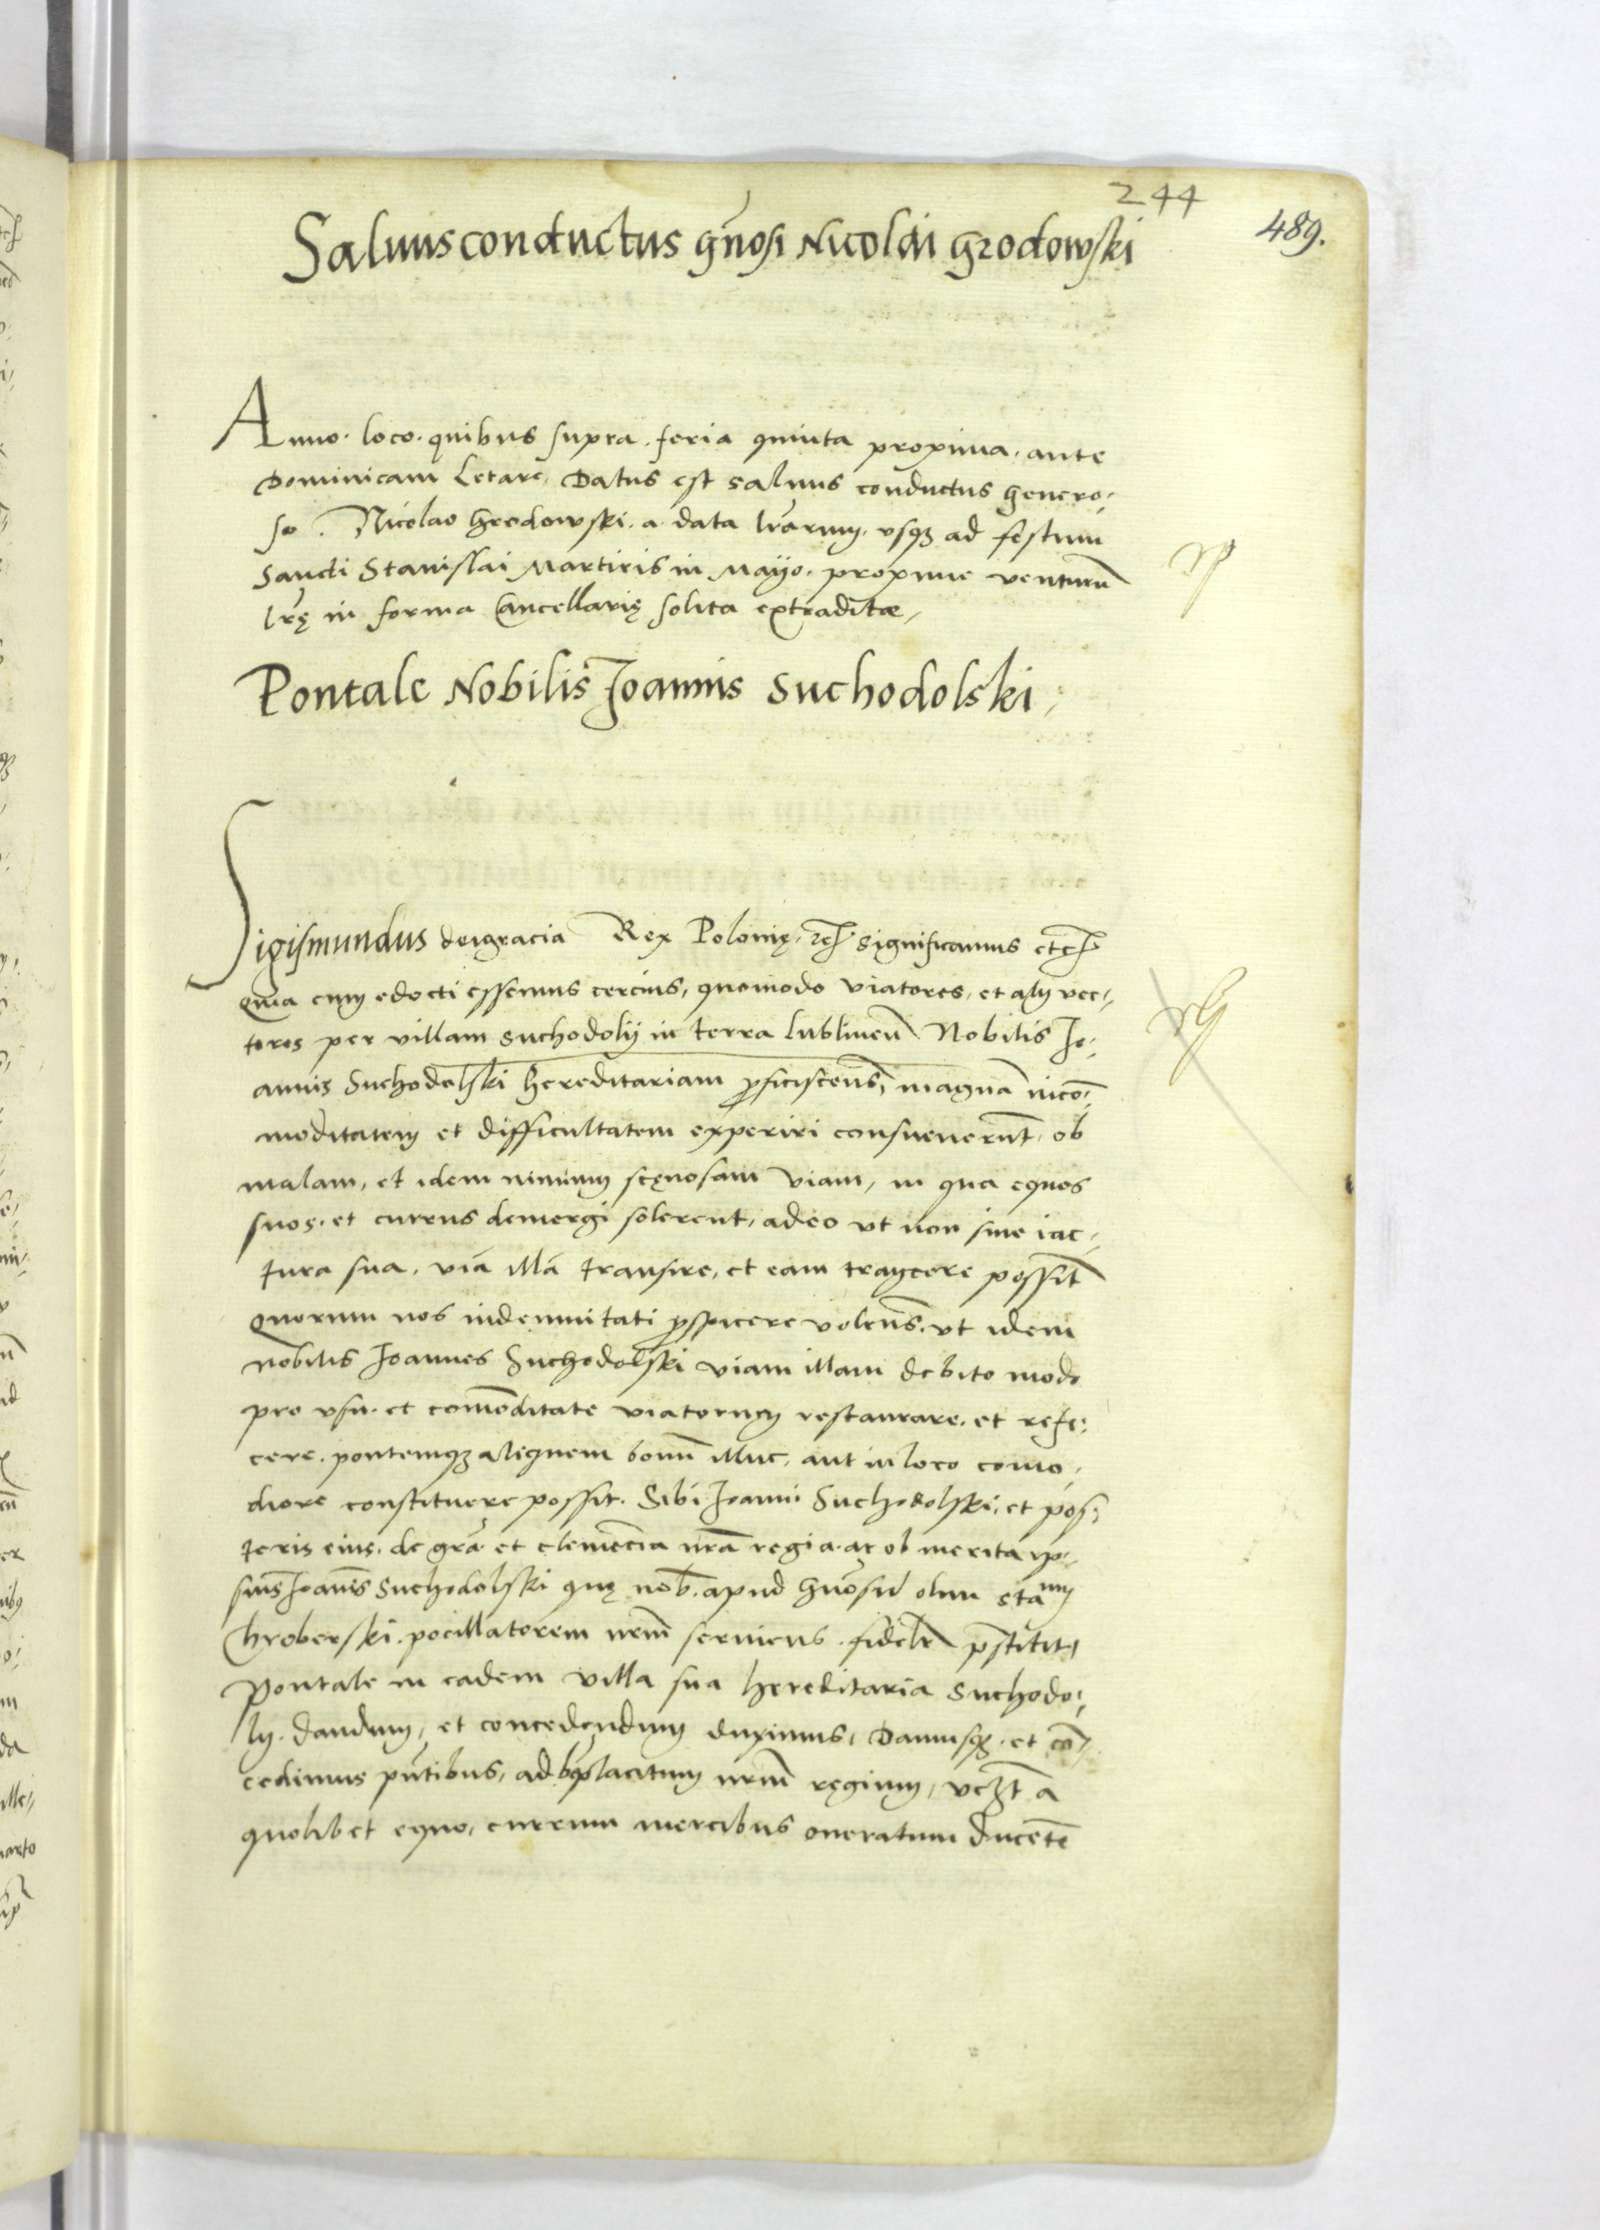 244
489.
Saluusconductus gn̄osi Nicolai Grodowski
Anno. loco. quibus supra. feria quinta proxima. ante
Dominicam Letare, Datus est saluus conductus Genero-
so. Nicolao Grodowski. a data l̄rarum. vsq3 ad festum
Sancti Stanislai Martiris in Mayo. proxime venturū
l̄rę in forma Cancellarię solita extraditæ,
Pontale Nobilis Joannis Suchodolski,
Sigismundus deigracia Rex Polonię. etc significamus etc
Quia cum edocti essemus cercius, quomodo viatores, et alij vec-
tores per villam suchodolij in terra lublinen̄ Nobilis Jo-
annis Suchodolski hereditariam proficiscens̄, magnā incō-
moditatem et difficultatem experiri consueuerunt̄, ob
malam, et idem nimium scęnosam viam, in qua equos
suos. et currus demergi solerent, adeo vt non sine iac-
tura sua, viā illā transire, et eam traycere possint̄
Quorum nos indemnitati prospicere volens̄. vt idem
nobilis Joannes Suchodolski viam illam debito modo
pro vsu. et comōditate viatorum restaurare. et refi-
cere. pontemq3 aliquem bonū illuc, aut in loco como-
diore constituere possit. Sibi Joanni Suchodolski, et pos-
teris eius. de grā. et clemēcia nrā regia. ac ob merita ip-
sius Joan̄is Suchodolski quę nob̄. apud Gn̄osū olim Stanm
Chroberski. pocillatorem nrm̄ seruiens. fidelr̄ prestitit,
Pontale in eadem villa sua hereditaria Suchodo-
lij. dandum, et concedendum duximus, Damusq3. et cō-
cedimus pn̄tibus, ad bn̄placitum nrm̄ regium, vcz̄t ā
quolibet equo, currum mercibus oneratum ducētē